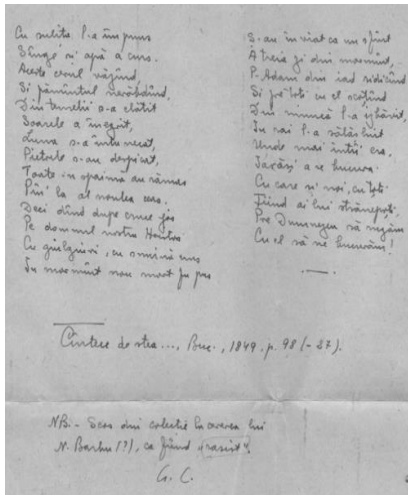 Cu sulița l-a împuns
Sânge și apă a curs.
Aceste cerul văzând,
Și pământul nerăbdând,
Din temelii s-a clătit
Soarele a înegrit,
Luna s-a întunecat,
Pietrele s-au despicat,
Toate în spaima au rămas
Pân' la al noulea ceas.
Deci dând dupe cruce jos
Pe domnul nostru Hristos
Cu giulgiuri, cu smirnă uns
In mormânt nou mort fu pus
S-au înviat ca un sfânt
A treia zi din mormânt,
P. Adam din iad ridicând
Și pre toți cu el scoțând
Din muncă l-a izbăvit,
In rai l-a sălășluit
Unde mai întâi era,
Iarăși a se bucura.
Cu care și noi, cu toți
Fiind ai lui strănepoți,
Pre Dumnezeu să rugăm
Cu el să ne bucurăm!
Cântece de stea..., Buc., 1849. p. 98 (-27).
NB. - Scos din colecție la cererea lui
N. Barbu (?), ca fiind "rasist".
G. C.